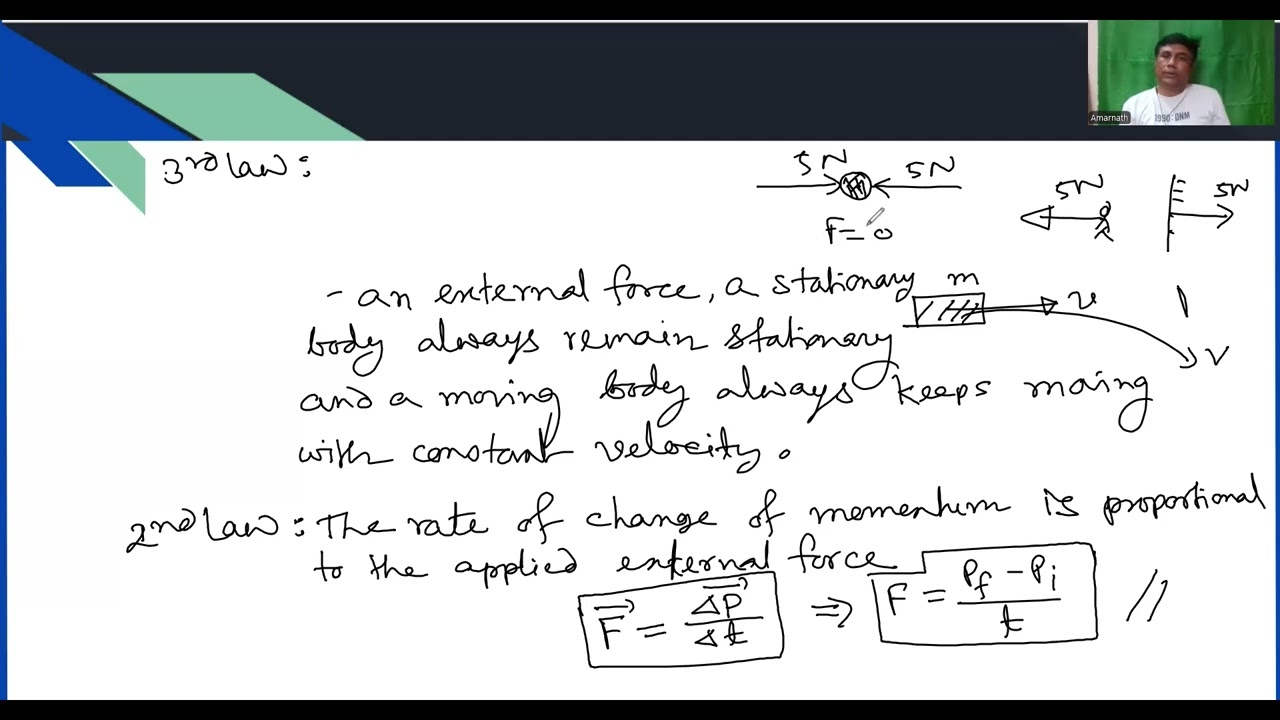 Amarnath
1990: DNM
3rd law:
5N 5N
F=0
5N 5N
- an external force, a stationary
m v
body always remain stationary
v
and a moving body always keeps moving
with constant velocity.
2nd law: The rate of change of momentum is proportional
to the applied external force
F = ΔP/Δt ⇒ F = (Pf - Pi)/t //